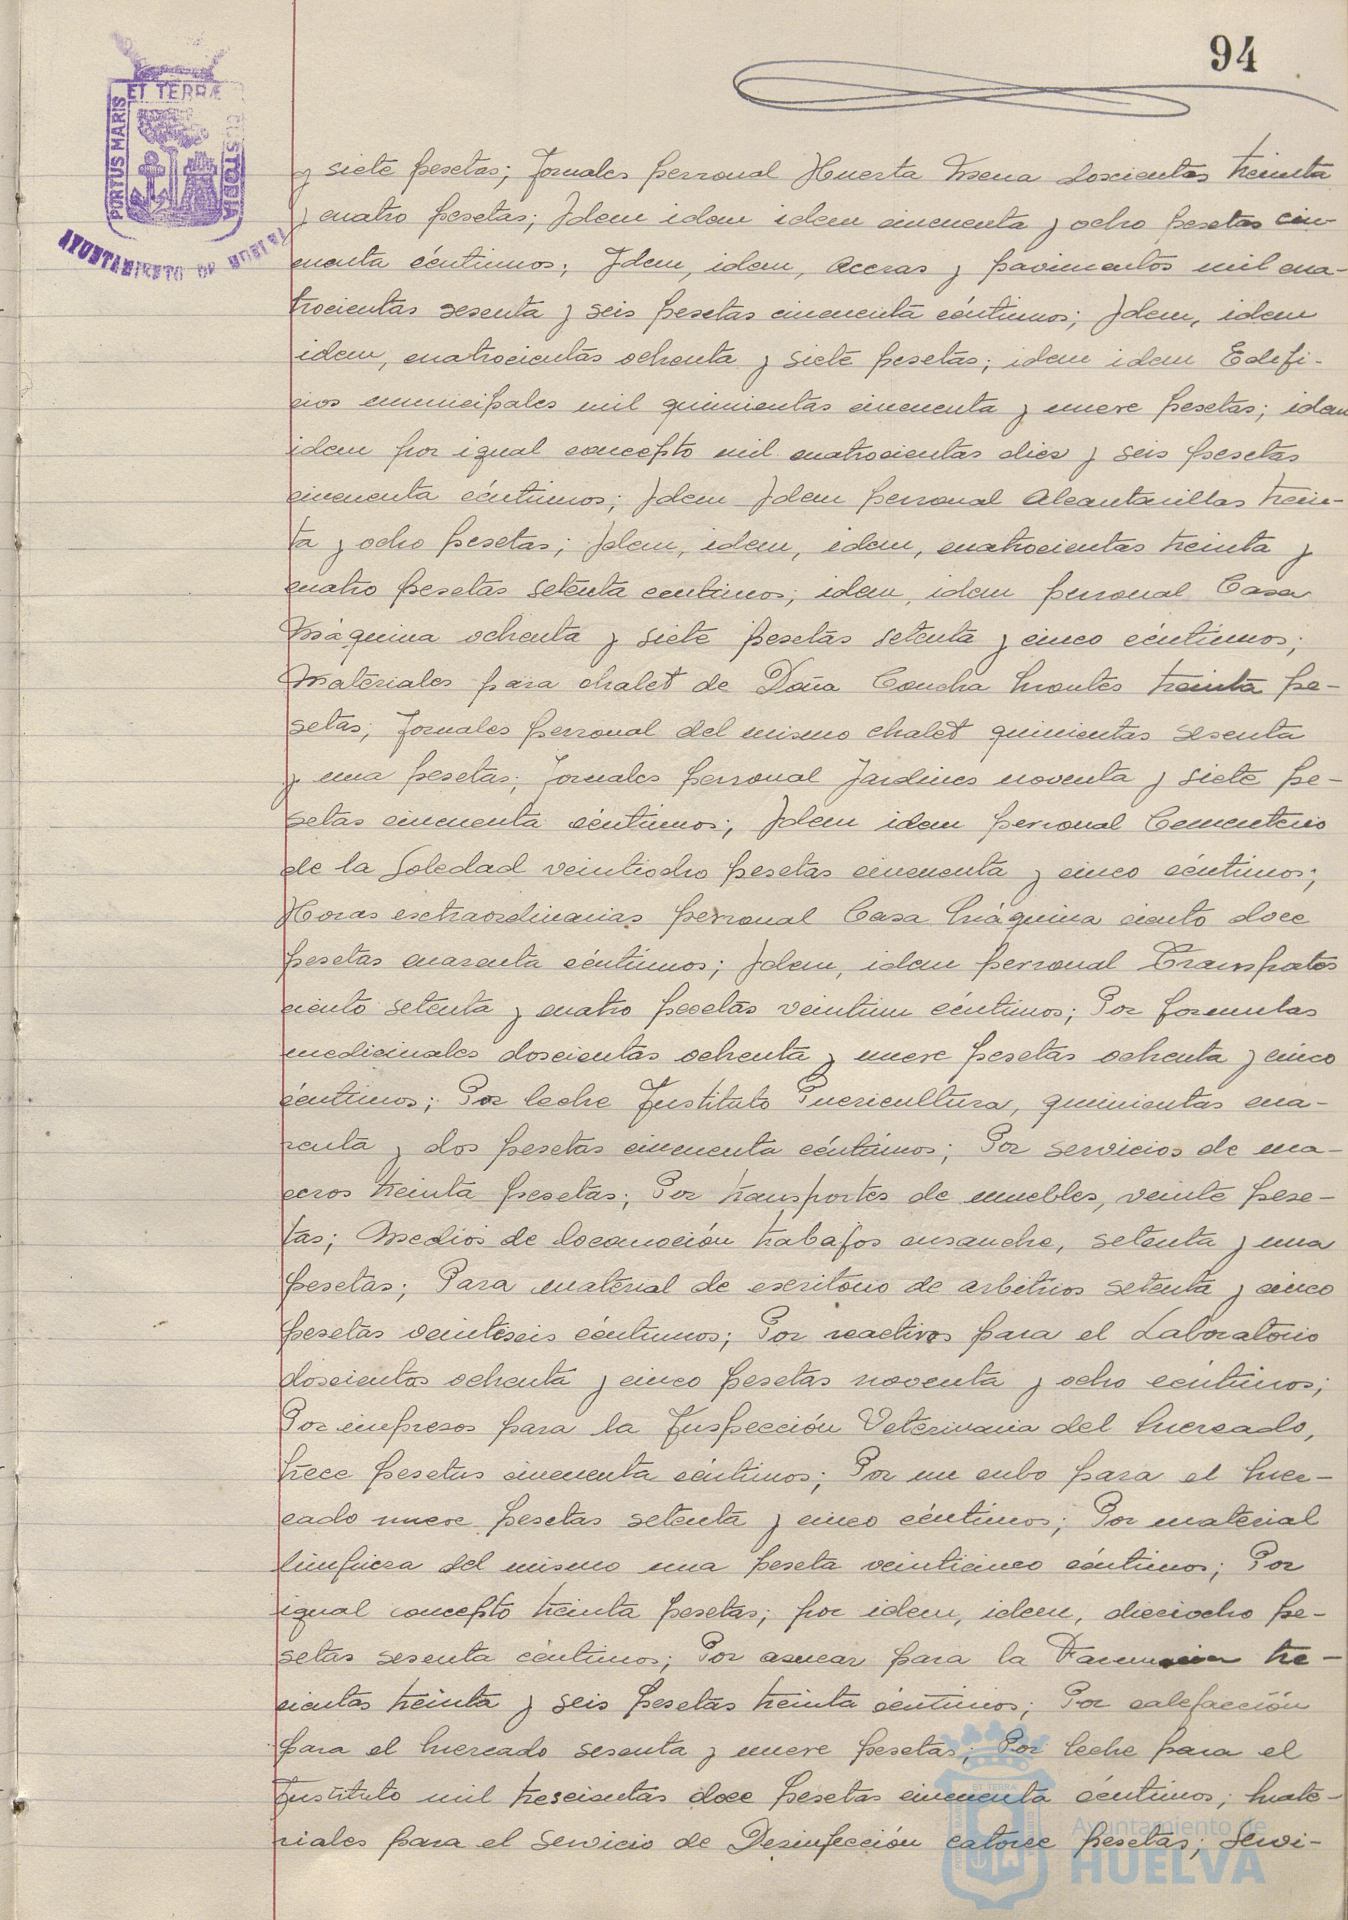 94
ET TERRÆ
PORTUS MARIS
CUSTODIA
AYUNTAMIENTO DE HUELVA
y siete pesetas; Jornales personal Huerta Mena doscientas treinta
y cuatro pesetas; Idem idem idem cincuenta y ocho pesetas cin-
cuenta céntimos; Idem, idem, Aceras y pavimentos mil cua-
trocientas sesenta y seis pesetas cincuenta céntimos; Idem, idem
idem, cuatrocientas ochenta y siete pesetas; idem idem Edifi-
cios municipales mil quinientas cincuenta y nueve pesetas; idem
idem por igual concepto mil cuatrocientas diez y seis pesetas
cincuenta céntimos; Idem Idem personal Alcantarillas trein-
ta y ocho pesetas; Idem, idem, idem, cuatrocientas treinta y
cuatro pesetas setenta centimos; idem, idem personal Casa
Máquina ochenta y siete pesetas setenta y cinco céntimos;
Materiales para chalet de Doña Concha Montes treinta pe-
setas; Jornales personal del mismo chalet quinientas sesenta
y una pesetas; Jornales personal Jardines noventa y siete pe-
setas cincuenta céntimos; Idem idem personal Cementerio
de la Soledad veintiocho pesetas cincuenta y cinco céntimos;
Horas extraordinarias personal Casa Máquina ciento doce
pesetas cuarenta céntimos; Idem, idem personal Transportes
ciento setenta y cuatro pesetas veintiun céntimos; Por formulas
medicinales doscientas ochenta y nueve pesetas ochenta y cinco
céntimos; Por leche Instituto Puericultura, quinientas cua-
renta y dos pesetas cincuenta céntimos; Por servicios de ma-
ceros treinta pesetas; Por transportes de muebles, veinte pese-
tas; Medios de locomoción trabajos ensanche, setenta y una
pesetas; Para material de escritorio de arbitrios setenta y cinco
pesetas veintiseis céntimos; Por reactivos para el Laboratorio
doscientos ochenta y cinco pesetas noventa y ocho céntimos;
Por impresos para la Inspección Veterinaria del Mercado,
trece pesetas cincuenta céntimos; Por un cubo para el Mer-
cado nueve pesetas setenta y cinco céntimos; Por material
limpieza del mismo una peseta veinticinco céntimos; Por
igual concepto treinta pesetas; por idem, idem, dieciocho pe-
setas sesenta céntimos; Por azucar para la Farmacia tre-
cientas treinta y seis pesetas treinta céntimos; Por calefacción
para el Mercado sesenta y nueve pesetas; Por leche para el
Instituto mil trescientas doce pesetas cincuenta céntimos; Mate-
riales para el servicio de Desinfección catorce pesetas; Servi-
Ayuntamiento de
HUELVA